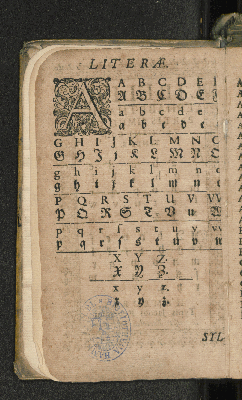 LITERÆ.
A
A B C D E
A B C D E
a b c d e
a b c d e
G H I j K L M N O
G H I j K L M N O
g h i j k l m n o
g h i j k l m n o
P Q R S T U V W
P Q R S T V u W
p q r ſ s t u v w
p q r ſ s t u v w
X Y Z.
X Y Z.
x y z.
x y z.
SYL